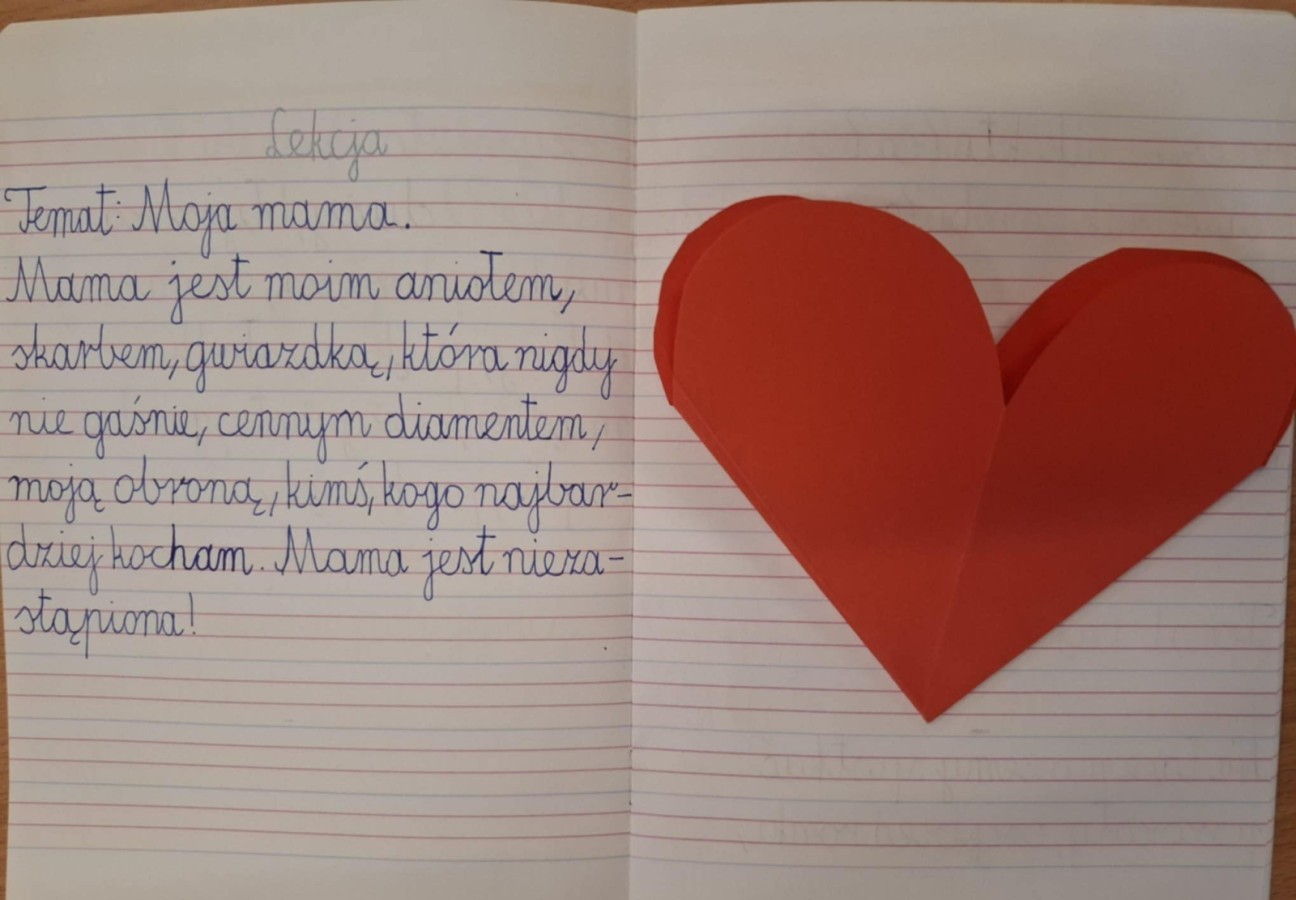 Lekcja
Temat: Moja mama.
Mama jest moim aniołem,
skarbem, gwiazdką, która nigdy
nie gaśnie, cennym diamentem,
moją obroną, kimś, kogo najbar-
dziej kocham. Mama jest nieza-
stąpiona!